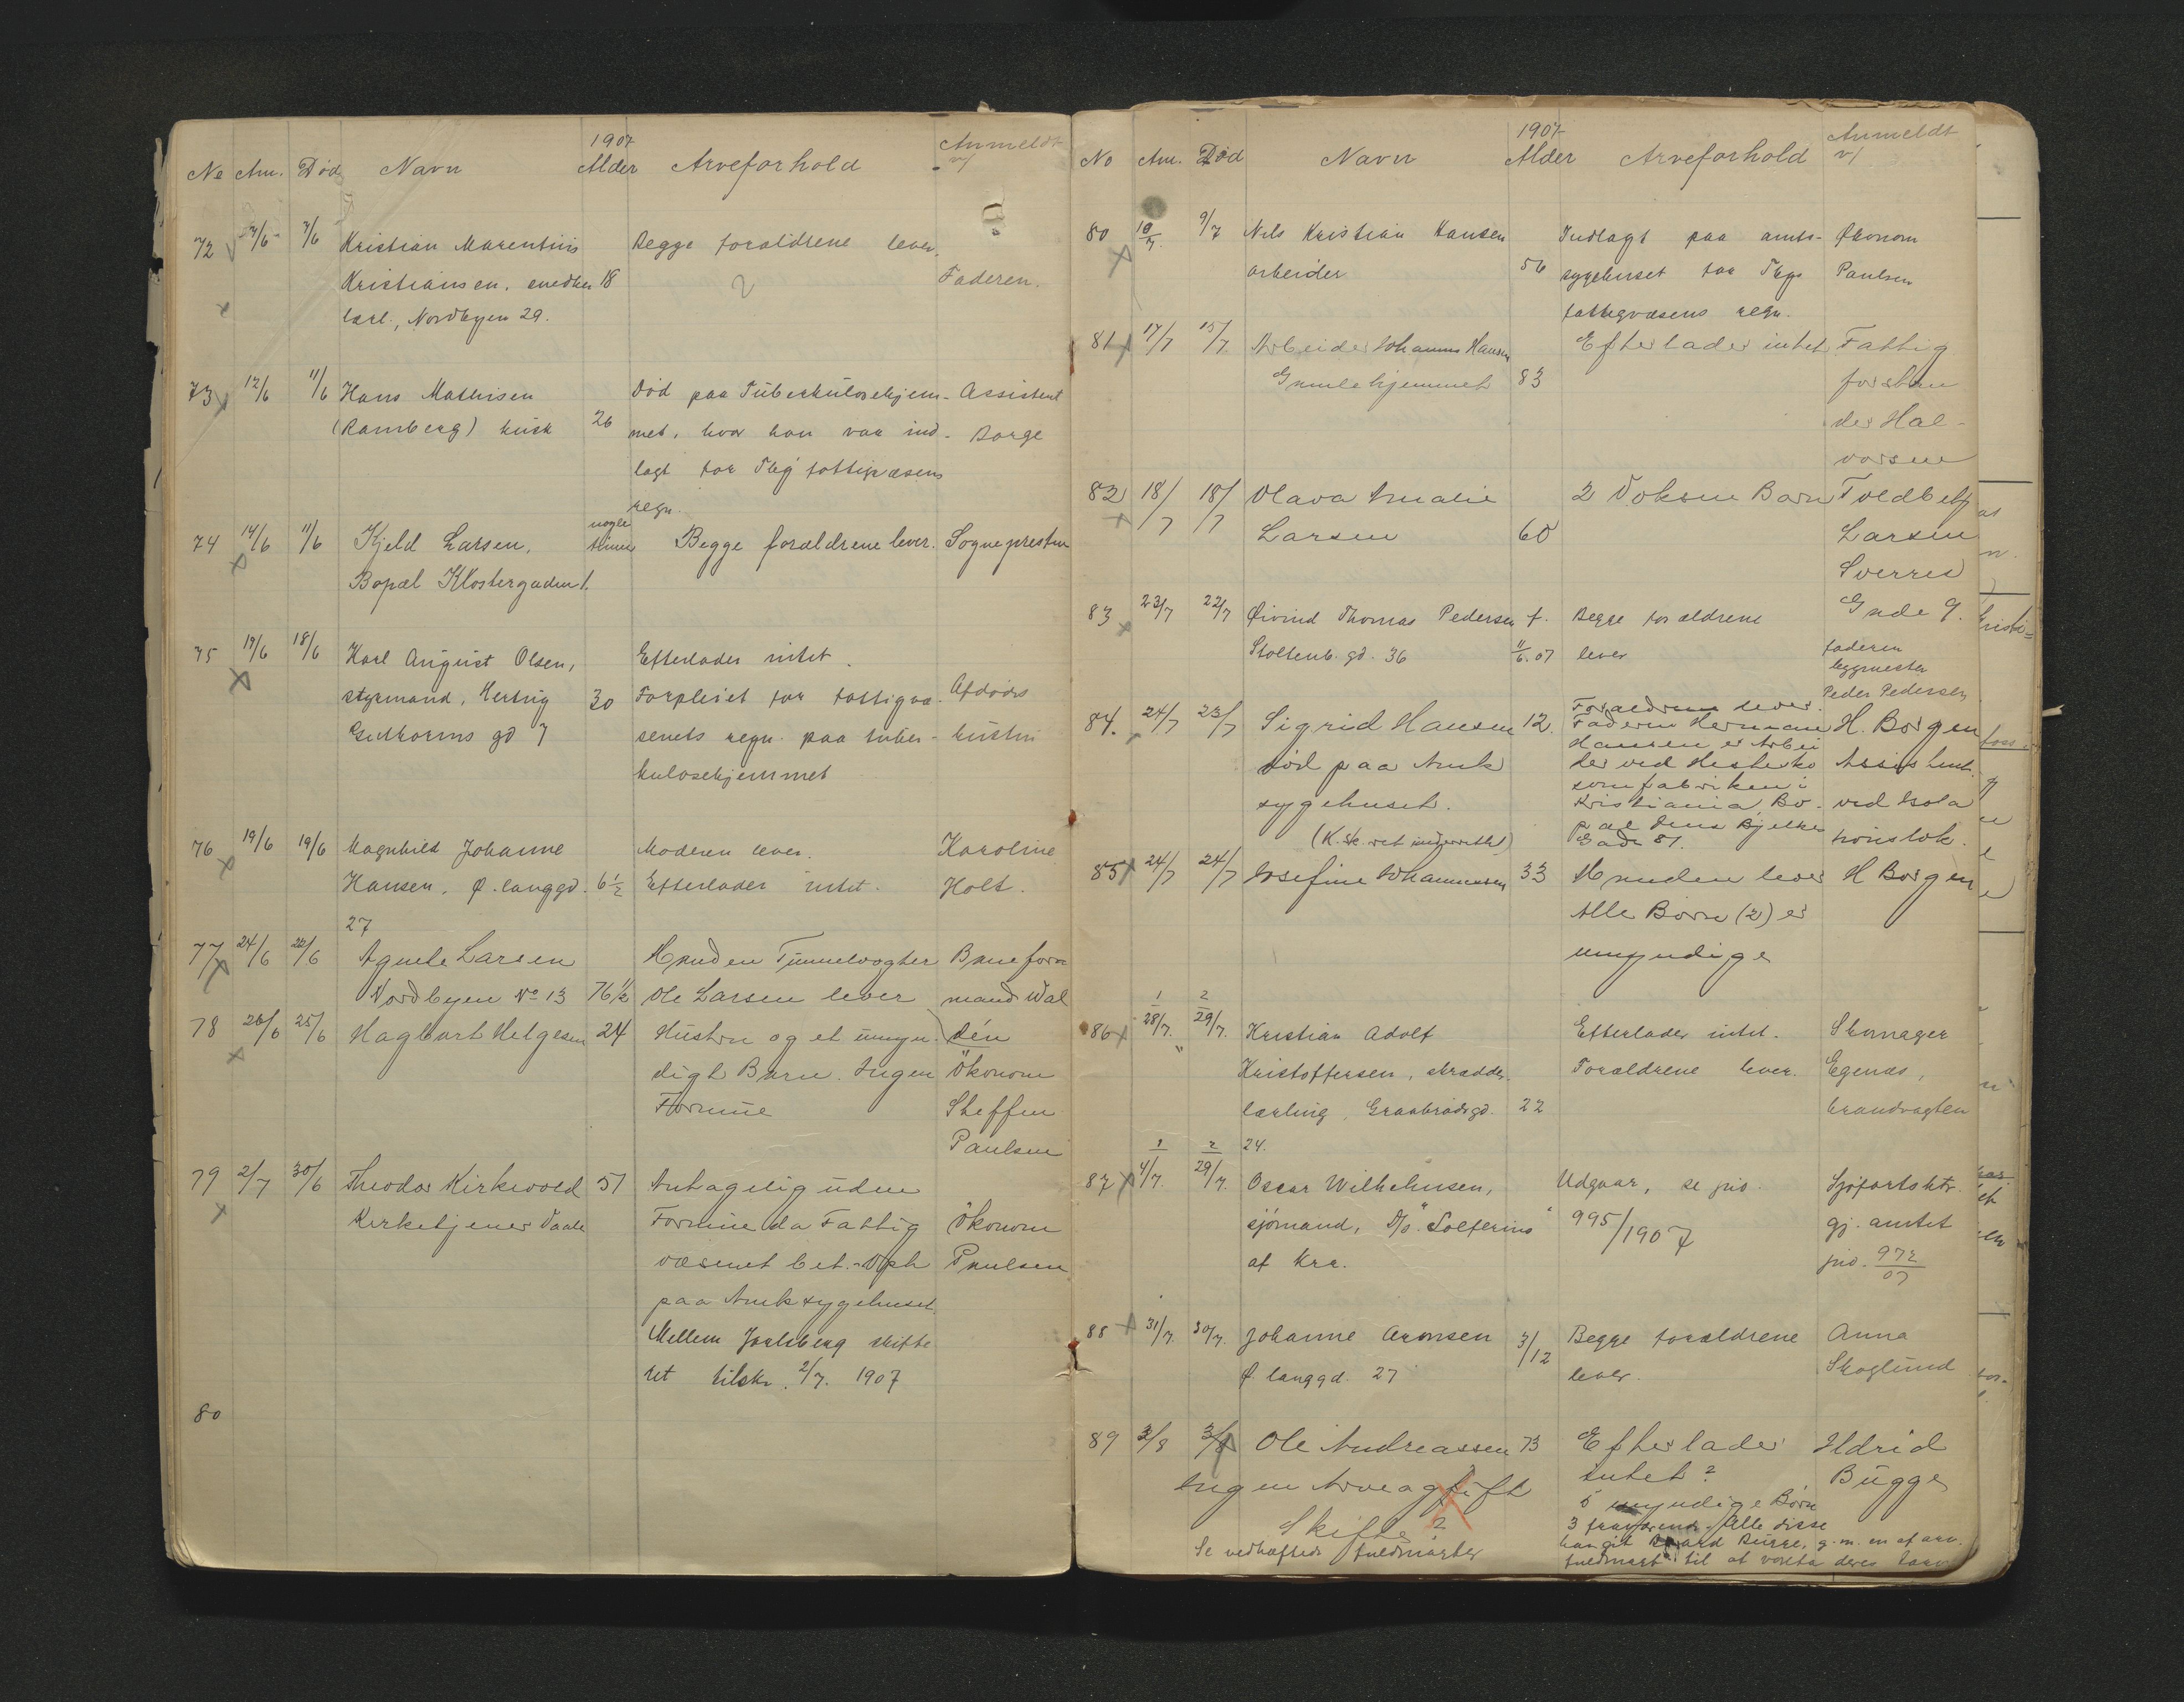 1907
No Anm. Død Navn Alder Arveforhold Anmeldt v/
72 7/6 7/6 Kristian Marentius Begge forældrene lever.
Kristiansen, snedker 18 Faderen.
lærl., Nordbyen 29.
73 12/6 11/6 Hans Mathisen Død paa Tuberkulosehjem- Assistent
(Ramberg) kusk 26 met, hvor han var ind- Borge
lagt for Tbg fattigvæsens
regn.
74 14/6 11/6 Kjeld Larsen, nogle timer Begge forældrene lever. Sognepresten
Bopæl Klostergaden 1.
75 19/6 18/6 Karl August Olsen, Efterlader intet.
styrmand, Hertug 30 Forpleiet for fattigvæ- Afdødes
Guthorms gd 7 senets regn. paa tuber- hustru
kulosehjemmet
76 19/6 19/6 Magnhild Johanne Moderen lever. Karoline
Hansen, Ø. langgd. 6½ Efterlader intet. Holt.
27
77 24/6 22/6 Agnete Larsen Manden Tunnelvogter Baneform
Nordbyen No 13 76½ Ole Larsen lever mand Wal
78 26/6 25/6 Hagbart Helgesen 24 Hustru og et umyn- dén
digt Barn. Ingen Økonom
Formue Steffen
Paulsen
79 2/7 30/6 Theodor Kirkevold 51 Antagelig uden
Kirketjener Vaale Formue da Fattig Økonom
væsenet bet. Oph Paulsen
paa Amtssygehuset.
Mellem Jarlsberg skifte
ret tilskr. 2/7. 1907
80
1907
No Anm. Død Navn Alder Arveforhold Anmeldt v/
80 10/7. 9/7 Nils Kristian Hansen Indlagt paa amts- Økonom
arbeider 56 sygehuset for Tbgs Paulsen
fattigvæsens regn.
81 17/7 15/7. Arbeider Johannes Hansen Efterlader intet Fattig
Gamlehjemmet 83 forstan
der Hal-
vorsen
82 18/7 18/7 Olava Amalie 2 Voksne Barn Toldbetj
Larsen 60 Larsen
Sverres
Gade 9.
83 23/7 22/7 Øivind Thomas Pedersen f. Begge forældrene
Stoltenb. gd. 36 11/6. 07 lever faderen
byggmester
Peder Pedersen
84. 24/7 23/7 Sigrid Hansen 12. Forældrene lever. H. Borgen
død paa Amts Faderen Hermann Assistent
sygehuset. Hansen er Arbei ved Isola
(K. sk. ret underrettet) der ved Hestesko tionslok.
somfabriken i
Kristiania. Bo-
pæl Jens Bjelkes
Gade 81.
85 24/7 24/7 Josefine Johannessen 33 Manden lever H Borgen
Alle Børn (2) er
umyndige
1 2
86 28/7. 29/7. Kristian Adolf Efterlader intet. Skomager
Kristoffersen, skrædder- Forældrene lever. Egenæs,
lærling, Graabrødrgd. 22 brandvagten
24.
87 4/7. 29/7. Oscar Wilhelmsen, Udgaar, se jno. Sjøfartsktr.
sjømand, D/S "Solferino" 995/1907 gj. amtet
af Kra. jno. 972/07
88 31/7. 30/7. Johanne Aronsen 3/12 Begge forældrene Anna
Ø. langgd. 27 lever. Skoglund
89 3/8 3/8 Ole Andreassen 73 Efterlader Ildrid
Ingen Arveagift intet? Bugge
Skifte? 5 myndige Børn
3 fraværende. Alle disse
Se vedhæftede fuldmagter
fuldmagt til at vareta deres tarv